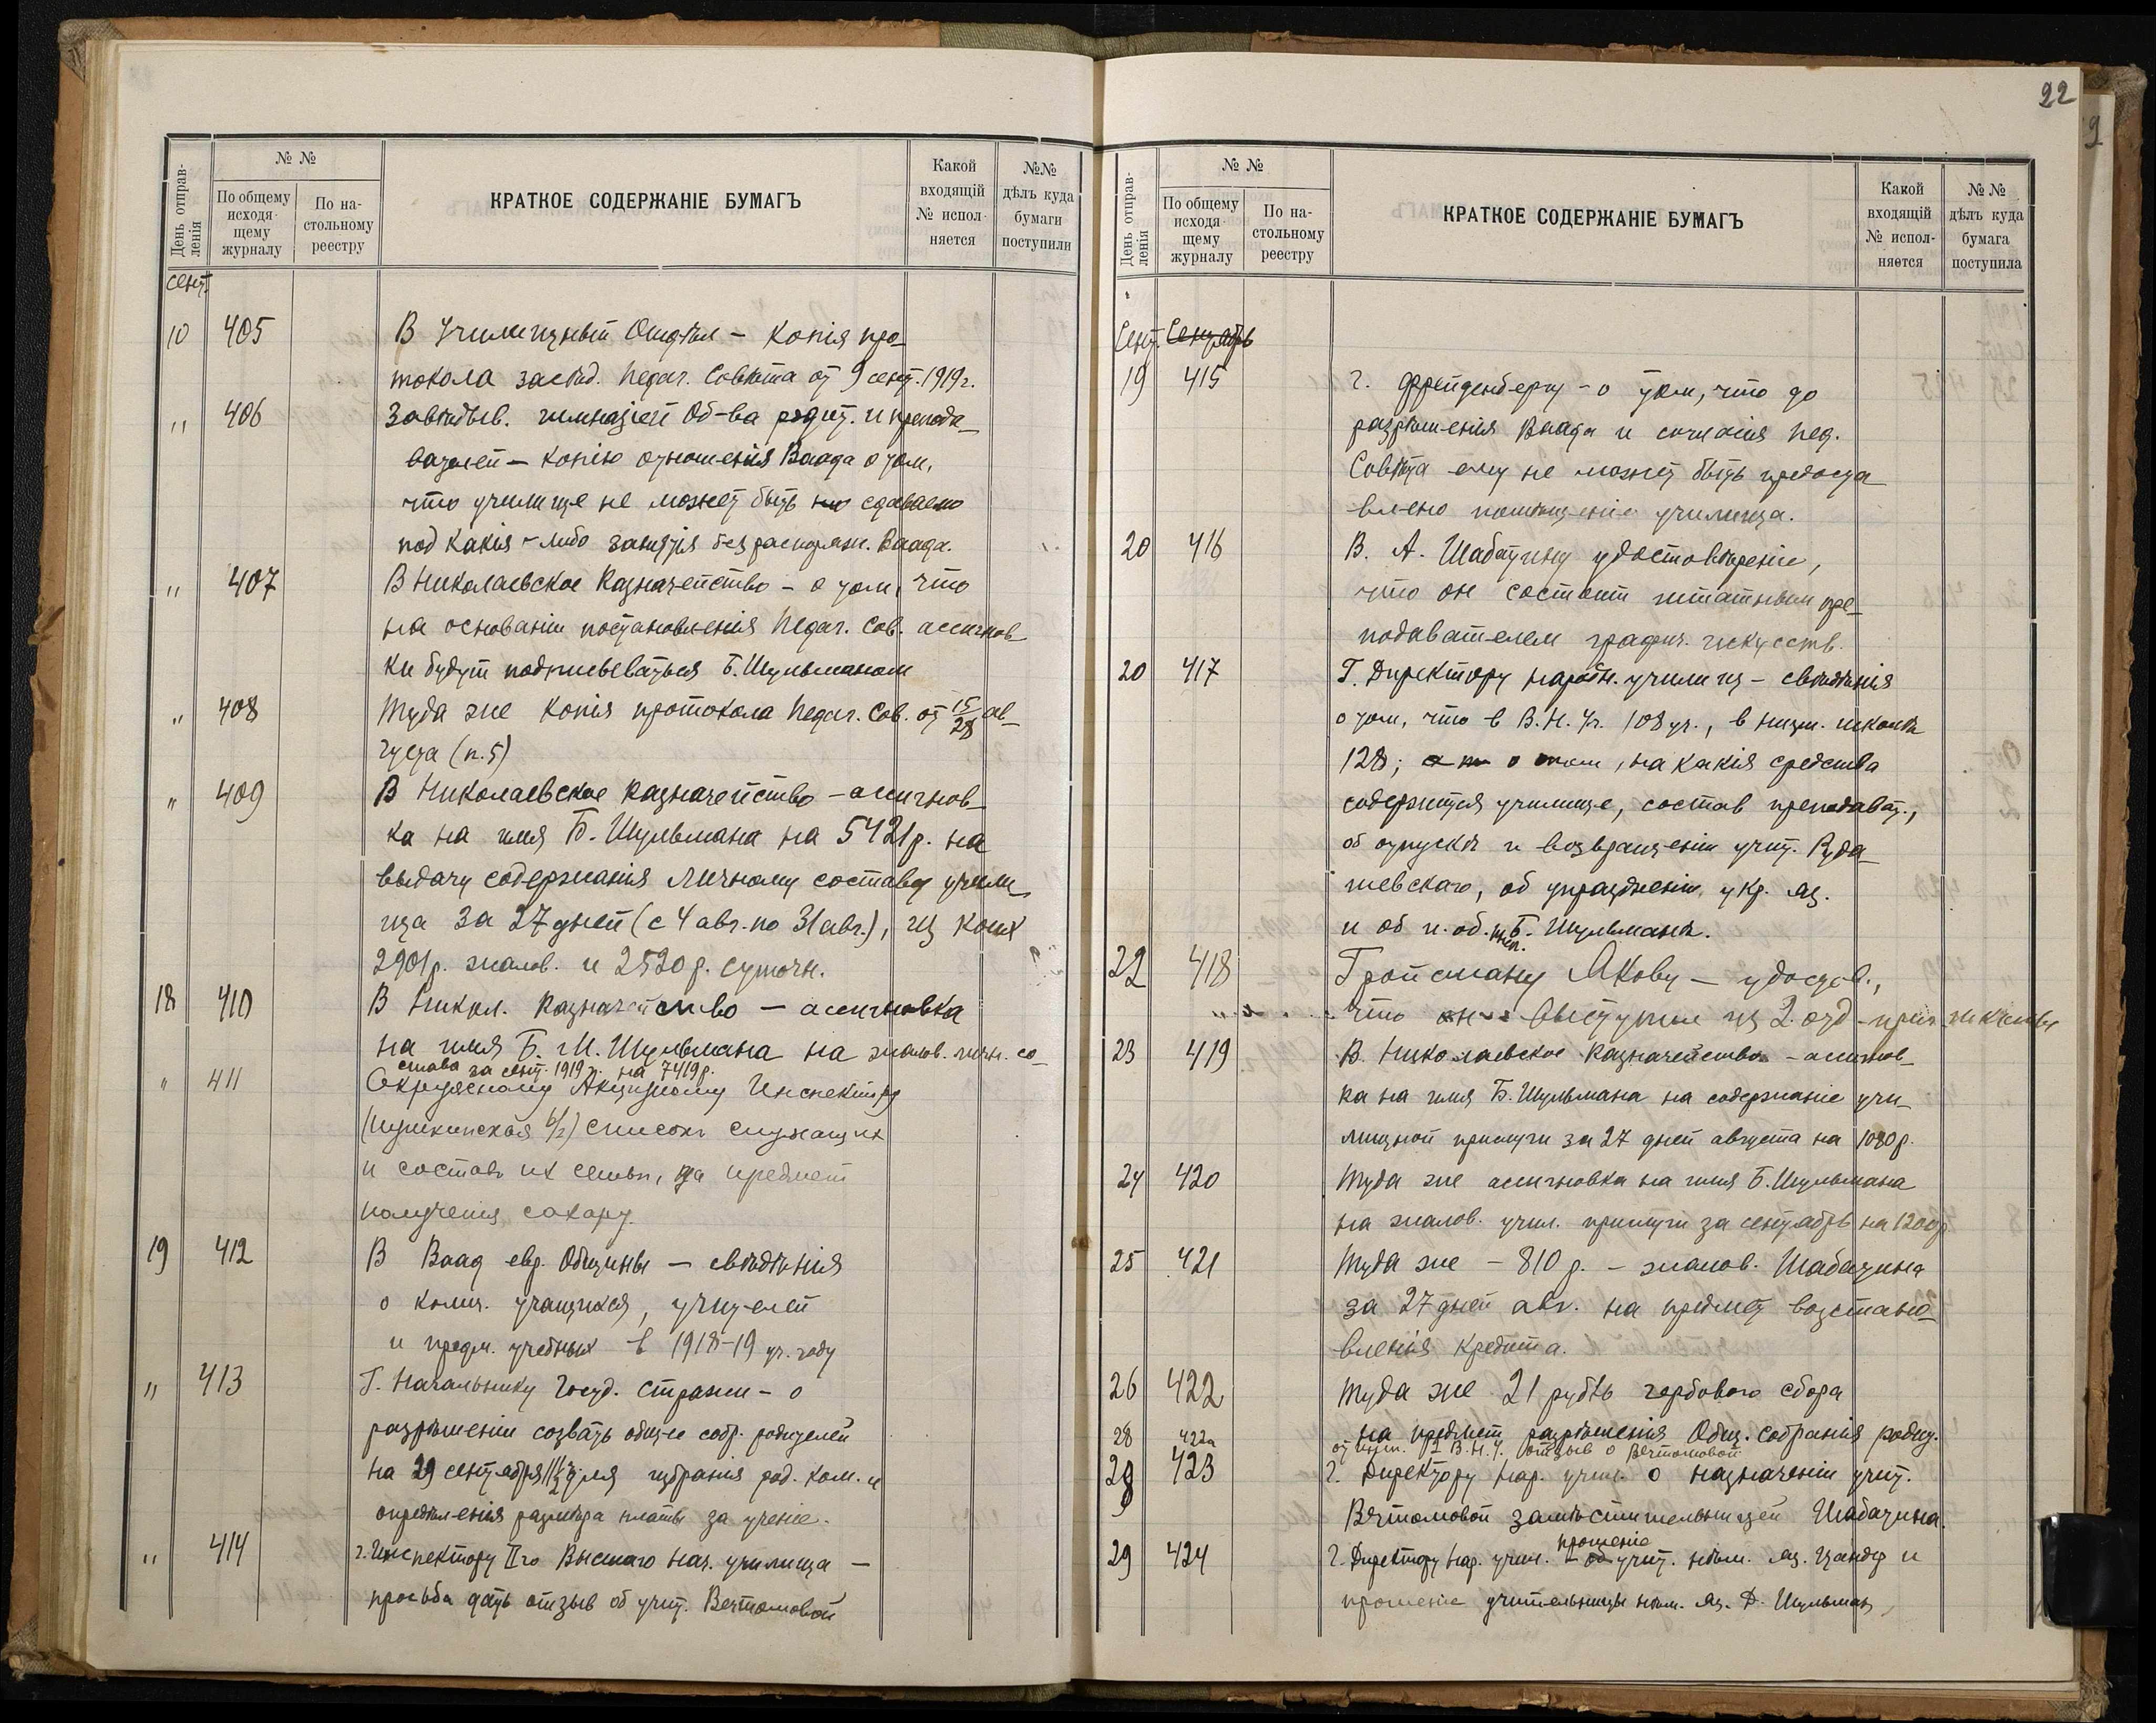 22
9
День отправ-
ленія
№ №
По общему
исходя-
щему
журналу
По на-
стольному
реестру
КРАТКОЕ СОДЕРЖАНІЕ БУМАГЪ
Какой
входящій
№ испол-
няется
№№
дѣлъ куда
бумаги
поступили
сент.
10 405 В Училищный Отдѣл – Копія про-
токола засѣд. Педаг. Совѣта от 9 сент. 1919 г.
" 406 Завѣдыв. гимназіей Об-ва родит. и препода-
вателей – копію отношенія Ваада о том,
что училище не может быть сдаваемо
под какія-либо занятія без распоряж. Ваада.
" 407 В Николаевское Казначейство – о том, что
на основаніи постановленія Педаг. Сов. ассигнов-
ки будут подписываться Б. Шульманом
" 408 Туда же копія протокола Педаг. Сов. от 15/28 ав-
густа (п. 5)
" 409 В Николаевское Казначейство – ассигнов-
ка на имя Б. Шульмана на 5421 р. на
выдачу содержания личному составу учили-
ща за 27 дней (с 4 авг. по 31 авг.), из коих
2901 р. жалов. и 2520 р. суточн.
18 410 В Никол. Казначейство – ассигновка
на имя Б. И. Шульмана на жалов. личн. со-
става за сент. 1919 г. на 7419 р.
" 411 Окружному Акцизному Инспектору
(Пушкинская ) список служащих
и составъ их семьи, на предмет
полученія сахару.
19 412 В Ваад евр. Общины – свѣдѣнія
о колич. учащихся, учителей
и предм. учебных в 1918-19 уч. году
" 413 Г. Начальнику Госуд. Стражи – о
разрѣшеніи созвать общее собр. родителей
на 29 сентября для избранія род. ком. и
опредѣленія размѣра платы за ученіе.
" 414 г. Инспектору IIго Высшаго нач. училища –
просьба дать отзыв об учит. Вептомовой
День отправ-
ленія
№ №
По общему
исходя-
щему
журналу
По на-
стольному
реестру
КРАТКОЕ СОДЕРЖАНІЕ БУМАГЪ
Какой
входящій
№ испол-
няется
№ №
дѣлъ куда
бумага
поступила
Сент. Сентябрь
19 415 г. Фрейденбергу – о том, что до
разрѣшенія Ваада и согласія Пед.
Совѣта ему не может быть предоста-
влено помѣщеніе училища.
20 416 В. А. Шабатину удостовѣреніе,
что он состоит штатным пре-
подавателем графич. искусств.
20 417 Г. Директору народн. училищ – свѣдѣнія
о том, что в В. Н. Уч. 108 уч., в низш. школѣ
128; о том, на какія средства
содержится училище, состав преподават.,
об отпускѣ и возвращеніи учит. Руда-
шевскаго, об упраздненіи укр. яз.
и об и. об. Б. Шульманѣ.
22 418 Гройсману Якову – удостов.,
что он выступил из 2. отд.
23 419 В. Николаевское Казначейство – ассигнов-
ка на имя Б. Шульмана на содержаніе учи-
лищной прислуги за 27 дней августа на 1080 р.
24 420 Туда же ассигновка на имя Б. Шульмана
на жалов. учил. прислуги за сентябрь на 1200 р.
25 421 Туда же – 810 р. – жалов. Шабатина
за 27 дней авг. на предмет возстано-
вленія кредита.
26 422 Туда же 21 рубль гербового сбора
на предмет разрѣшенія Общ. собранія родит.
28 422а В. Н. У. отзыв о Вептомовой
28 423 г. Директору Нар. учил. о назначеніи учит.
Вептомовой замѣстительницей Шабатина.
29 424 г. Директору Нар. учил. – прошеніе учит. нѣм. яз. Цандер и
прошеніе учительницы нѣм. яз. Д. Шульман